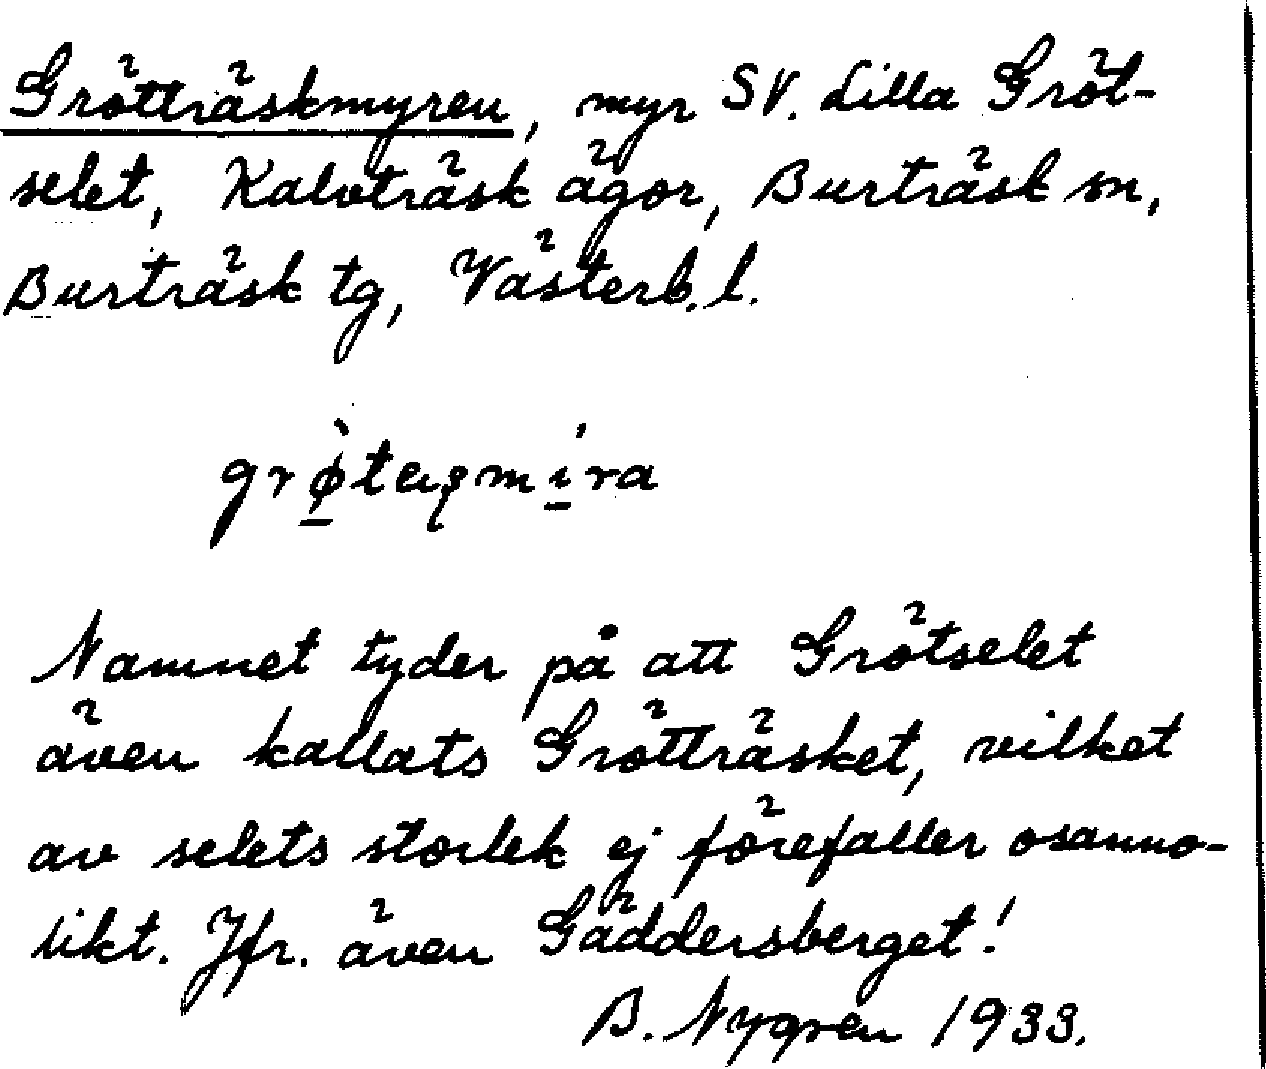 Grötträskmyren, myr SV. Lilla Gröt-
selet, Kalvträsk ägor, Burträsk sn,
Burträsk tg, Västerb. l.
Namnet tyder på att Grötselet
även kallats Grötträsket, vilket
av selets storlek ej förefaller osanno-
likt. Jfr. även Gäddersberget!
B. Nygren 1933.